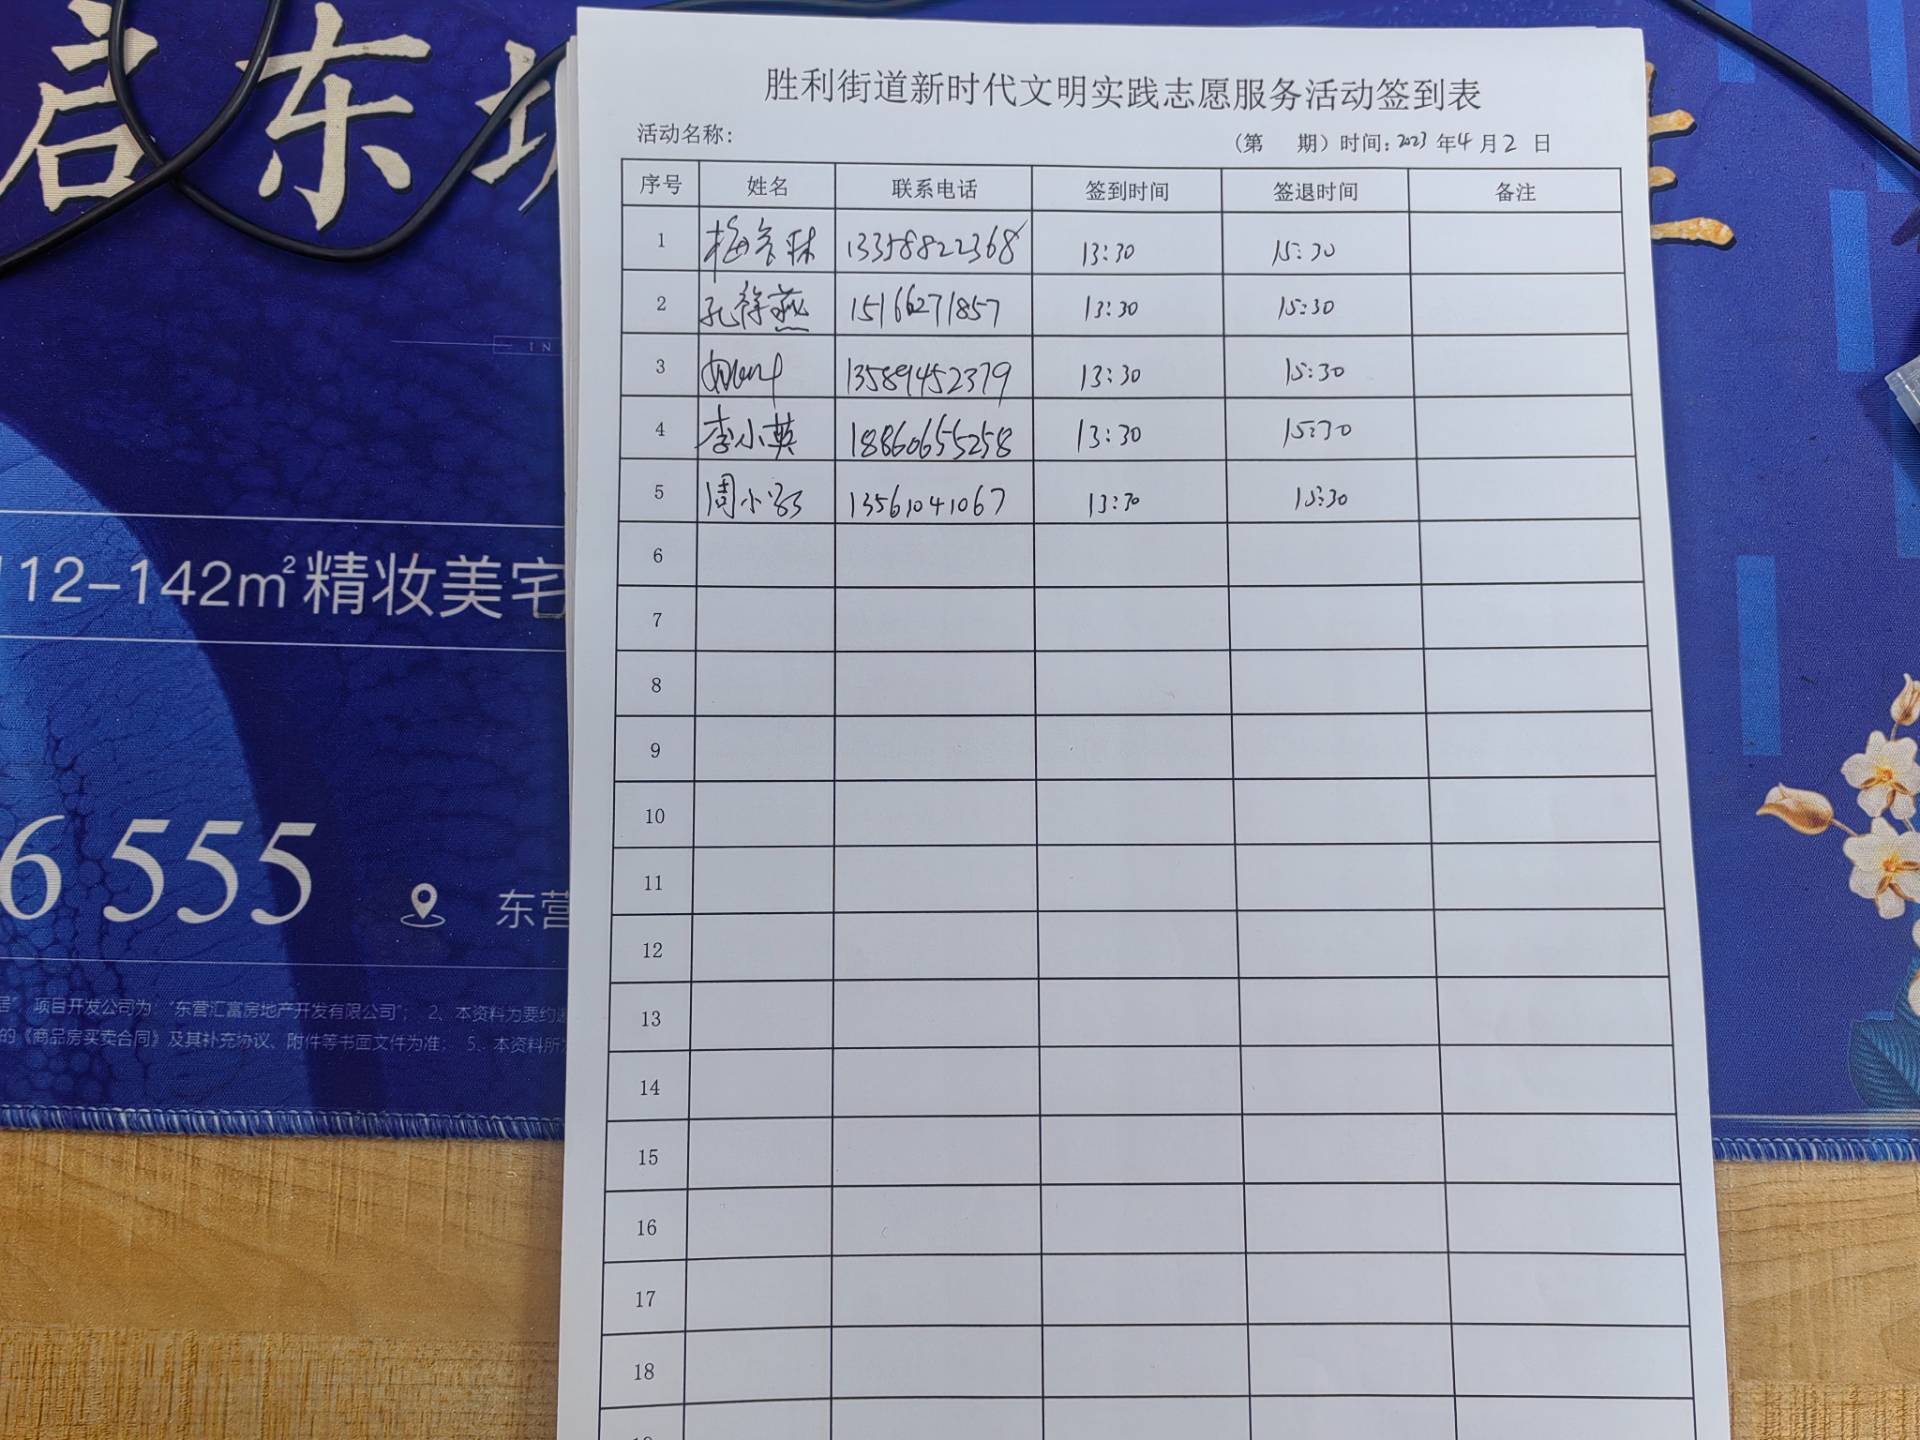 启东
IN
112-142m²精妆美宅
6 555
东营
居”，项目开发公司为：“东营汇富房地产开发有限公司”； 2、本资料为要约
的《商品房买卖合同》及其补充协议、附件等书面文件为准； 5、本资料所
胜利街道新时代文明实践志愿服务活动签到表
活动名称： （第 期）时间：2023 年4 月2 日
序号 姓名 联系电话 签到时间 签退时间 备注
1 梅 林 13358822368 13:30 15:30
2 孔祥燕 15166271857 13:30 15:30
3 13589452379 13:30 15:30
4 李小英 18860655258 13:30 15:30
5 周小 13561041067 13:30 15:30
6
7
8
9
10
11
12
13
14
15
16
17
18